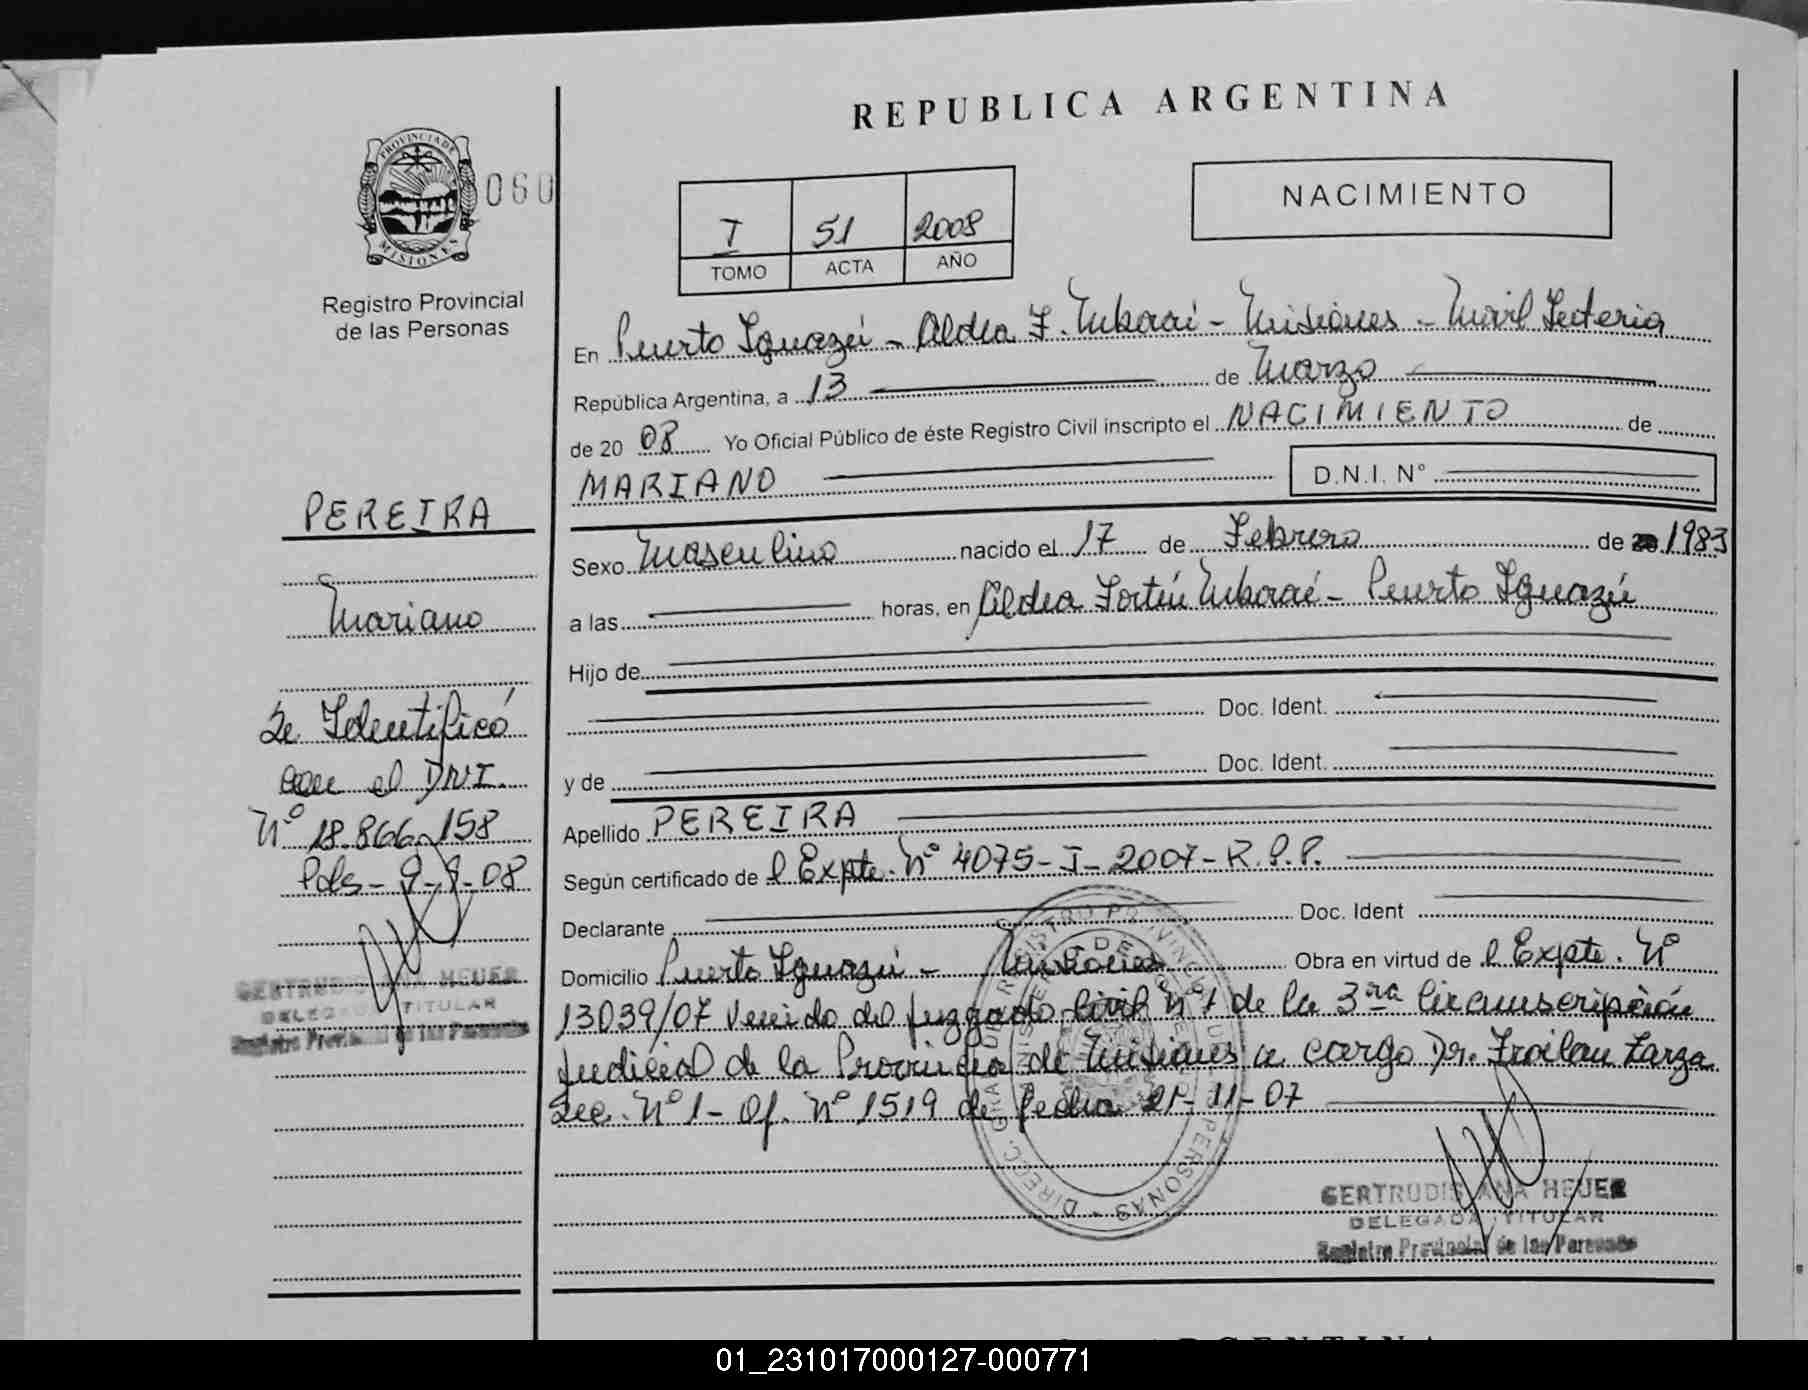 REPUBLICA ARGENTINA
PROVINCIA DE
MISIONES
060
Registro Provincial
de las Personas
I 51 2008
TOMO ACTA AÑO
NACIMIENTO
En Puerto Iguazú - Aldea F. Mbororé - Misiones - Movil
República Argentina, a 13 de Marzo
de 20 08 Yo Oficial Público de éste Registro Civil inscripto el NACIMIENTO de
MARIANO D.N.I. N°
Sexo Masculino nacido el 17 de Febrero de 1983
a las horas, en Aldea Fortín Mbororé - Puerto Iguazú
Hijo de
Doc. Ident.
y de Doc. Ident.
Apellido PEREIRA
Según certificado de l Expte. N° 4075-I-2007-R.P.P.
Declarante Doc. Ident
Domicilio Puerto Iguazú - Misiones Obra en virtud de l Expte. N°
13039/07 Venido del Juzgado Civil N° 1 de la 3ra Circunscripción
Judicial de la Provincia de Misiones a cargo Dr. Froilan Zarza
Sec. N° 1 - Of. N° 1519 de fecha 21-11-07
GERTRUDIS ANA HEUER
DELEGADA TITULAR
Registro Provincial de las Personas
PEREIRA
Mariano
Se Identificó
con el DNI.
N° 18.866.158
Pds - 9-9-08
GERTRUDIS ANA HEUER
DELEGADA TITULAR
Registro Provincial de las Personas
01_231017000127-000771